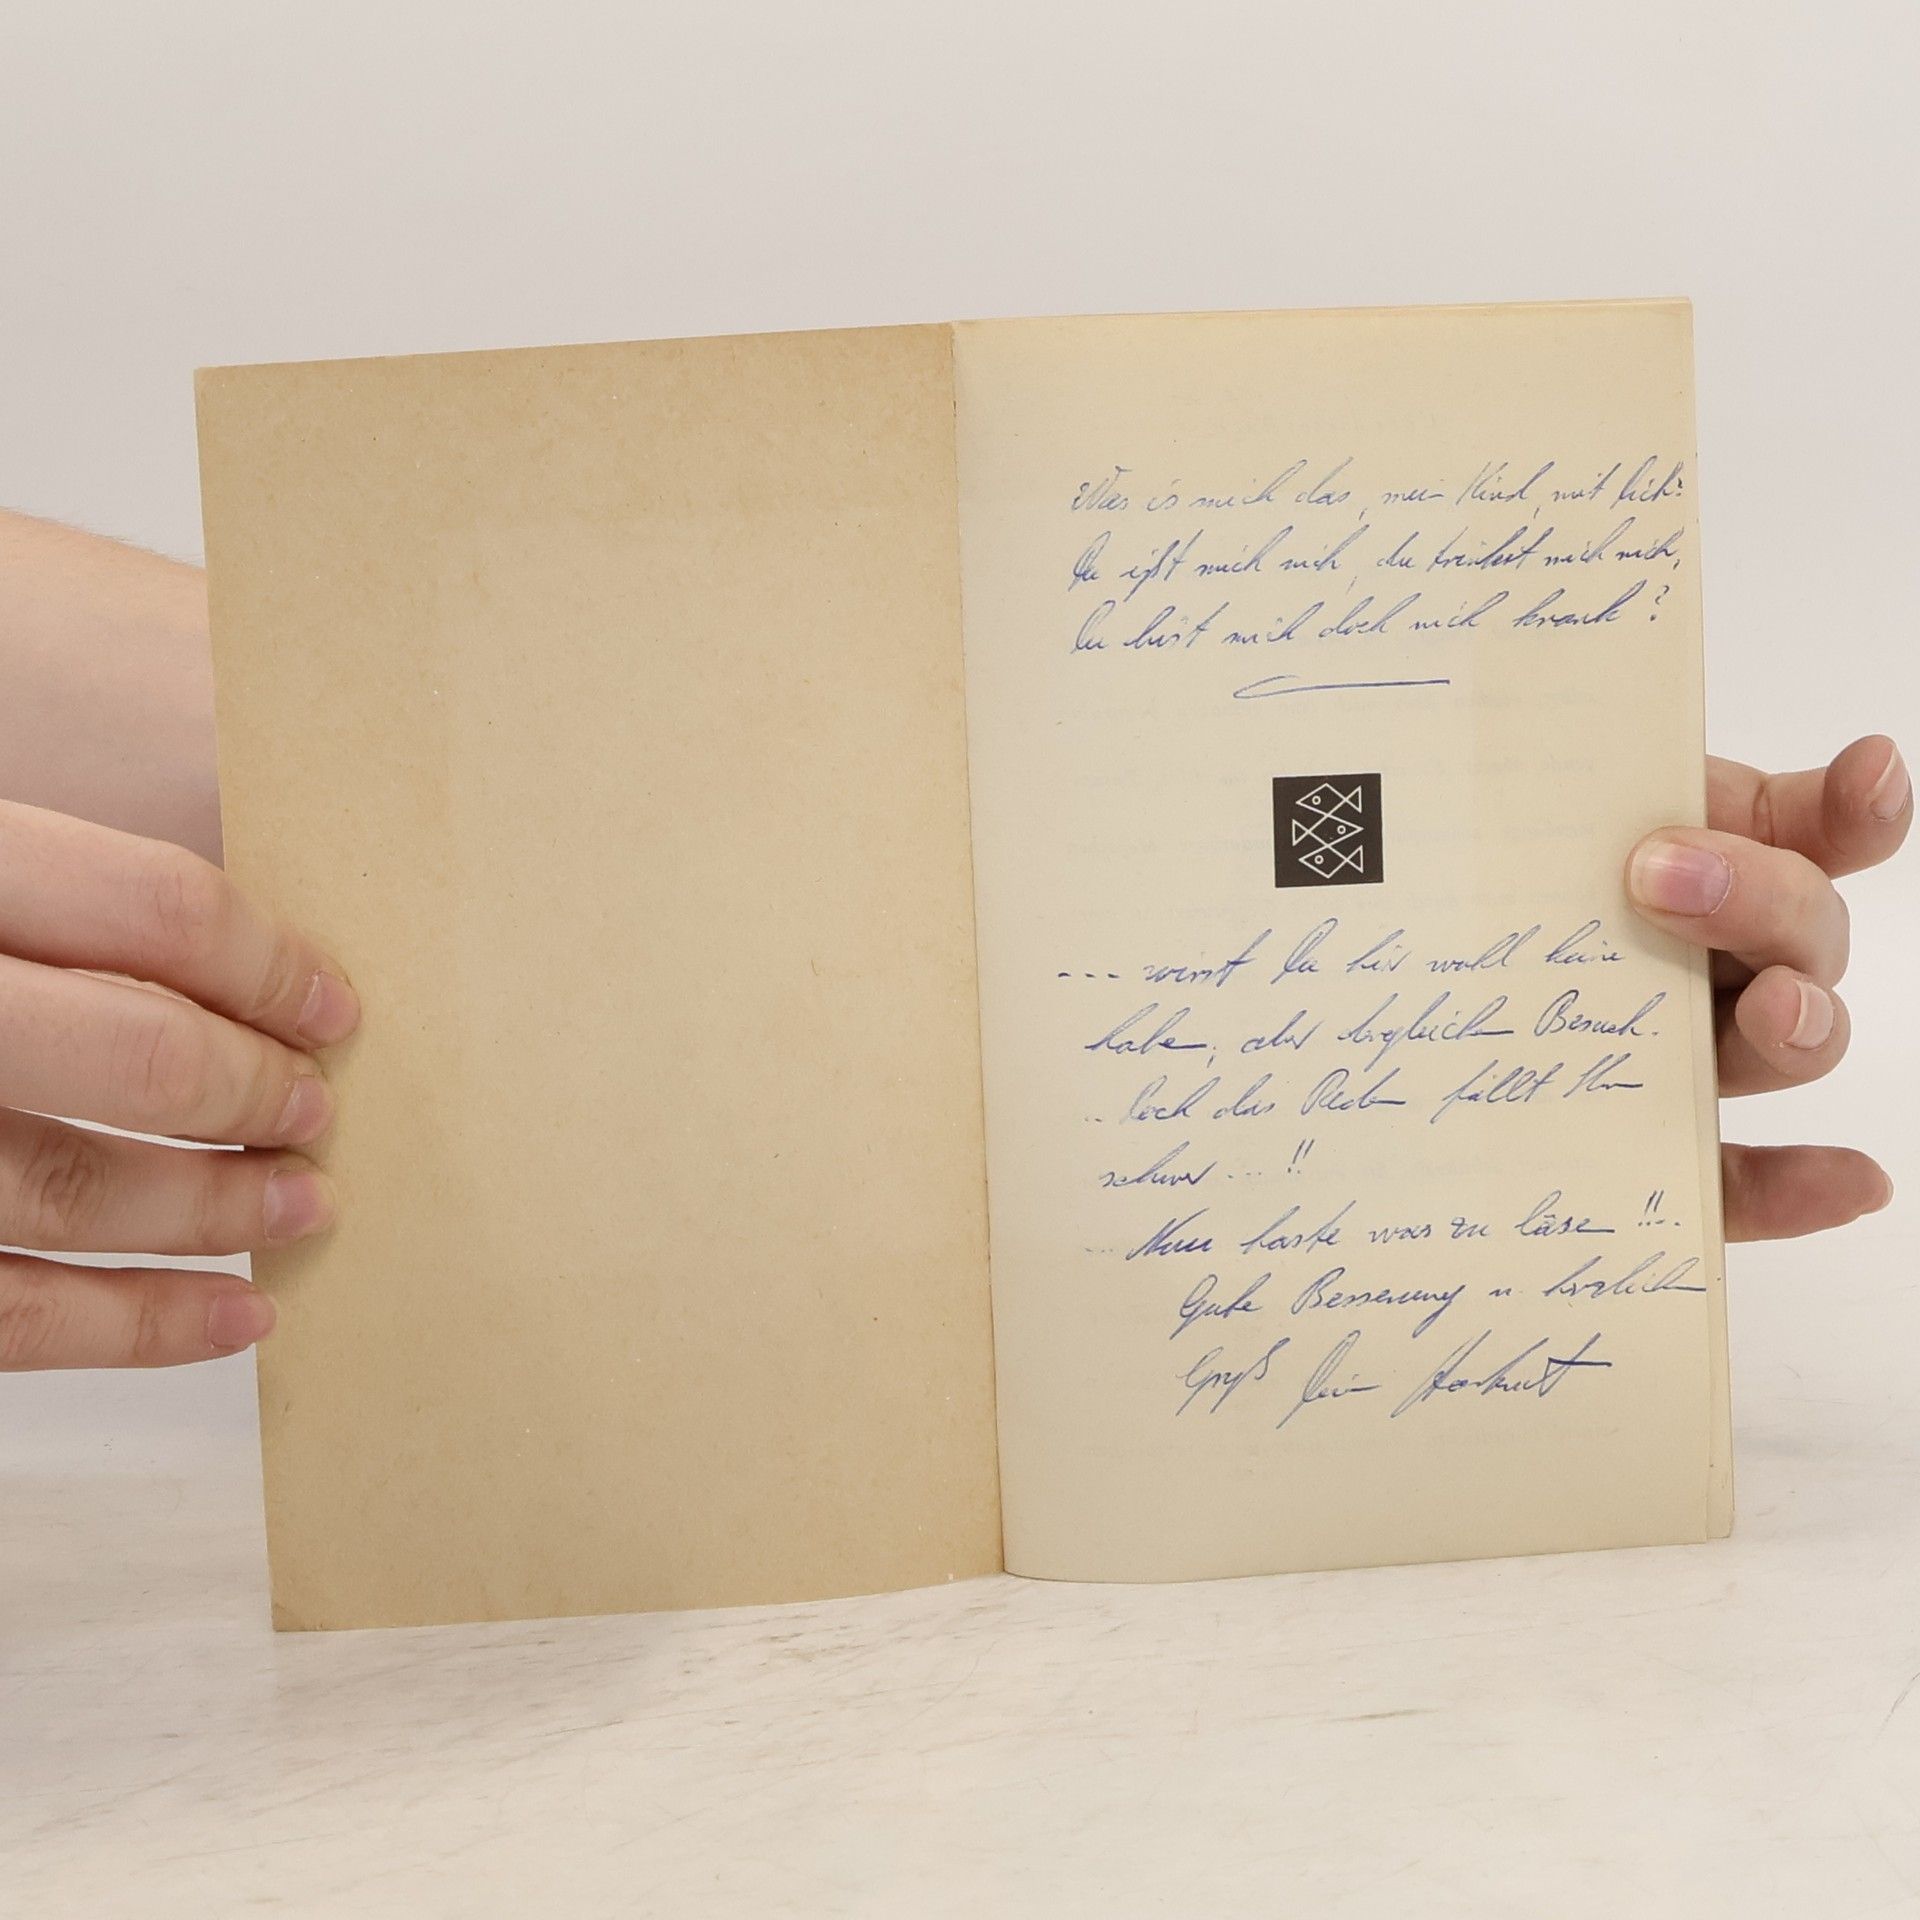 Was is mich das, mein Kind, mit Dich?
Du ißt mich nich, du trinkst mich nich,
Du bist mich doch nich krank?
--- wirst Du hier wohl keine
haben, aber dergleichen Besuch.
.. Doch das Reden fällt Ihm
schwer ... !!
... Nuu haste was zu läsen !!..
Gute Besserung u. herzlichen
Gruß Dein